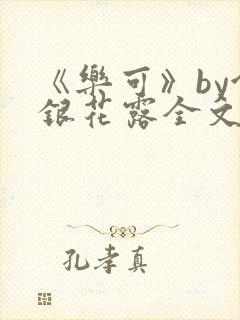 《樂可》by
銀花露全文
孔孝真